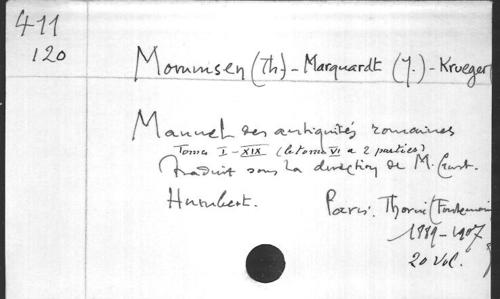 411
120
Mommsen (Th.) - Marquardt (J.) - Krueger
Manuel des antiquités romaines
Tomes I-XIX (le tome VI a 2 parties)
Traduit sous la direction de M. Gust.
Humbert.
Paris. Thorin (Fontemoin
1889-1907
20 vol.